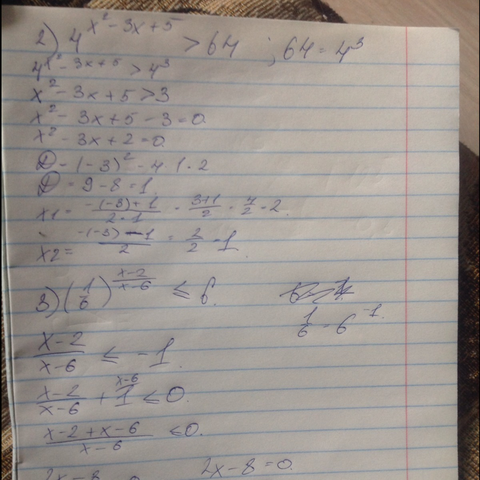 2) 4^(x²-3x+5) > 64 ; 64 = 4³
4^(x²-3x+5) > 4³
x² - 3x + 5 > 3
x² - 3x + 5 - 3 = 0.
x² - 3x + 2 = 0.
D = (-3)² - 4·1·2
D = 9 - 8 = 1.
x1 = (-(-3)+1)/(2·1) = (3+1)/2 = 4/2 = 2.
x2 = (-(-3)-1)/2 = 2/2 = 1.
3) (1/6)^((x-2)/(x-6)) ≤ 6.
1/6 = 6^(-1).
(x-2)/(x-6) ≤ -1.
(x-2)/(x-6) + 1^(x-6) ≤ 0.
(x-2+x-6)/(x-6) ≤ 0.
2x-8 = 0.